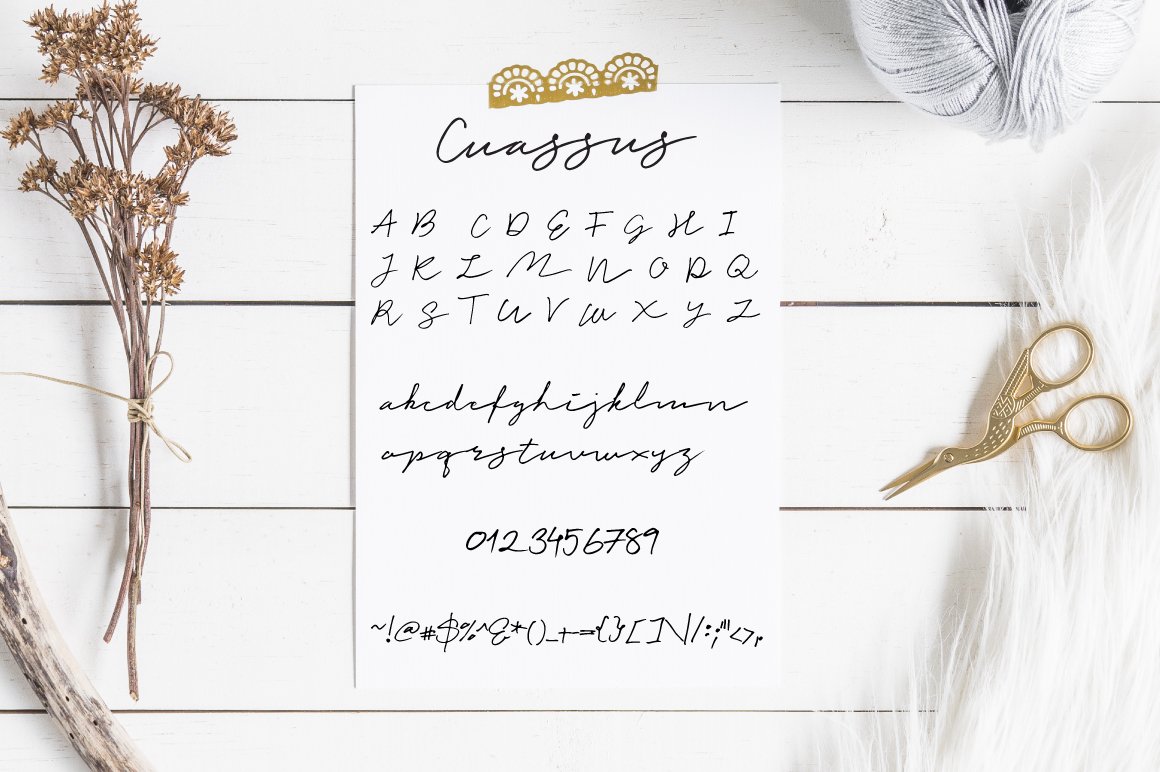 Cuassus
A B C D E F G H I
J K L M N O P Q
R S T U V W X Y Z
abcdefghijklmn
opqrstuvwxyz
0123456789
~!@#$%^&*()_+={}[]\|/:;"'<>,.